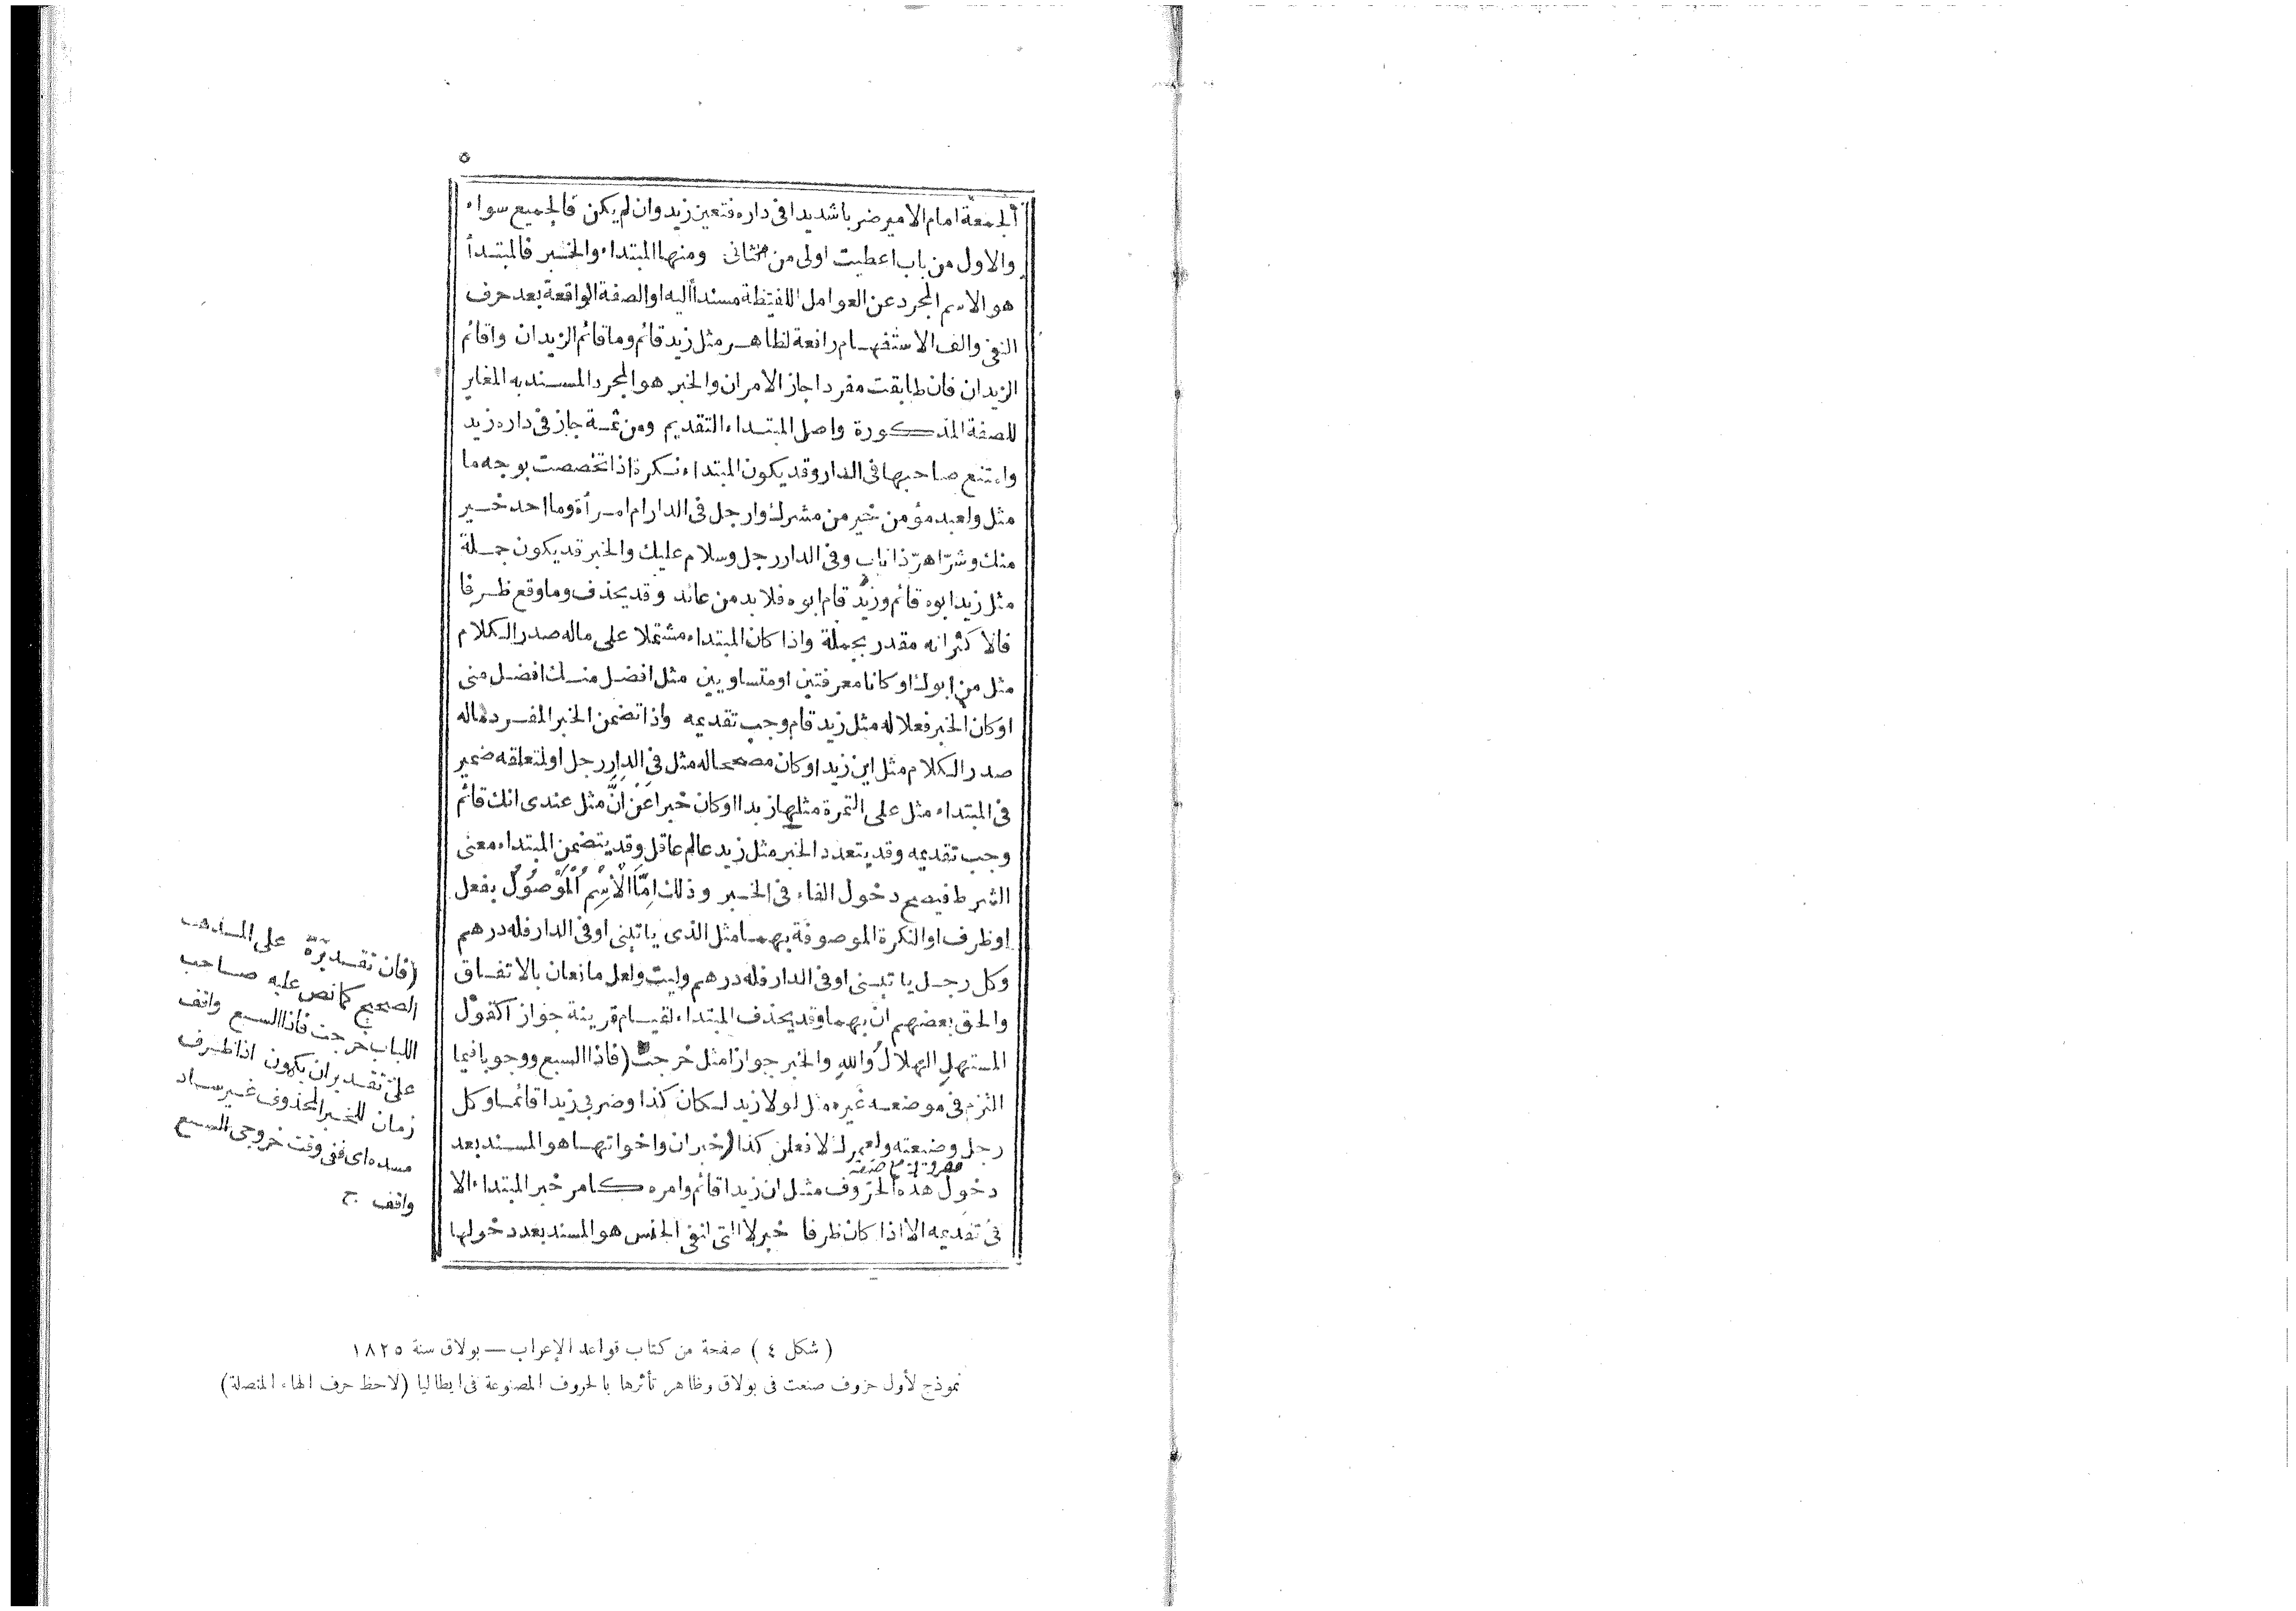 ٥
الجمعة امام الامير ضربا شديدا فى داره فتعين زيد وان لم يكن فالجميع سواء
والاول من باب اعطيت اولى من الثانى ومنها المبتداء والخبر فالمبتدأ
هو الاسم المجرد عن العوامل اللفيظة مسندأ اليه او الصفة الواقعة بعد حرف
النفى والف الاستفهام رافعة لظاهر مثل زيد قائم وما قائم الزيدان واقائم
الزيدان فان طابقت مفردا جاز الامران والخبر هو المجرد المسند به المغاير
للصفة المذكورة واصل المبتداء التقديم ومن ثمة جاز فى داره زيد
وامتنع صاحبها فى الدار وقد يكون المبتداء نكرة اذا تخصصت بوجه ما
مثل ولعبد مؤمن خير من مشرك وارجل فى الدار ام امرأة وما احد خير
منك وشرّ اهرّ ذا ناب وفى الدار رجل وسلام عليك والخبر قد يكون جملة
مثل زيد ابوه قائم وزيد قام ابوه فلا بد من عائد وقد يحذف وما وقع ظرفا
فالاكثر انه مقدر بجملة واذا كان المبتداء مشتملا على ماله صدر الكلام
مثل من ابوك او كانا معرفتين او متساويين مثل افضل منك افضل منى
او كان الخبر فعلا له مثل زيد قام وجب تقديمه واذا تضمن الخبر المفرد ماله
صدر الكلام مثل اين زيد او كان مصححا له مثل فى الدار رجل او لمتعلقه ضمير
فى المبتداء مثل على التمرة مثلها زبدا او كان خبرا عَنْ انَّ مثل عندى انك قائم
وجب تقديمه وقد يتعدد الخبر مثل زيد عالم عاقل وقد يتضمن المبتداء معنى
الشرط فيصح دخول الفاء فى الخبر وذلك اِمَّا الْاِسْمُ الْمَوْصُولُ بفعل
او ظرف او النكرة الموصوفة بهما مثل الذى ياتينى او فى الدار فله درهم
وكل رجل ياتينى او فى الدار فله درهم وليت ولعل مانعان بالاتفاق
والحق بعضهم ان بهما وقد يحذف المبتداء لقيام قرينة جوازا كقول
المستهل الهلال والله والخبر جوازا مثل خرجت (فاذا السبع ووجوبا فيما
التزم فى موضعه غيره مثل لولا زيد لكان كذا وضربى زيدا قائما وكل
رجل وضيعته ولعمرك لافعلن كذا (خبر ان واخواتها هو المسند بعد
دخول هذه الحروف مثل ان زيدا قائم وامره كامر خبر المبتداء الا
فى تقديمه الا اذا كان ظرفا خبر لا التى لنفى الجنس هو المسند بعد دخولها
(فان تقديره على المذهب
الصحيح كما نص عليه صاحب
اللباب خرجت فاذا السبع واقف
على تقدير ان يكون اذا ظرف
زمان للخبر المحذوف غير ساد
مسده اى ففى وقت خروجى السبع
واقف ج
( شكل ٤ ) صفحة من كتاب قواعد الإعراب — بولاق سنة ١٨٢٥
نموذج لأول حروف صنعت فى بولاق وظاهر تأثرها بالحروف المصنوعة فى ايطاليا (لاحظ حرف الهاء المتصلة)